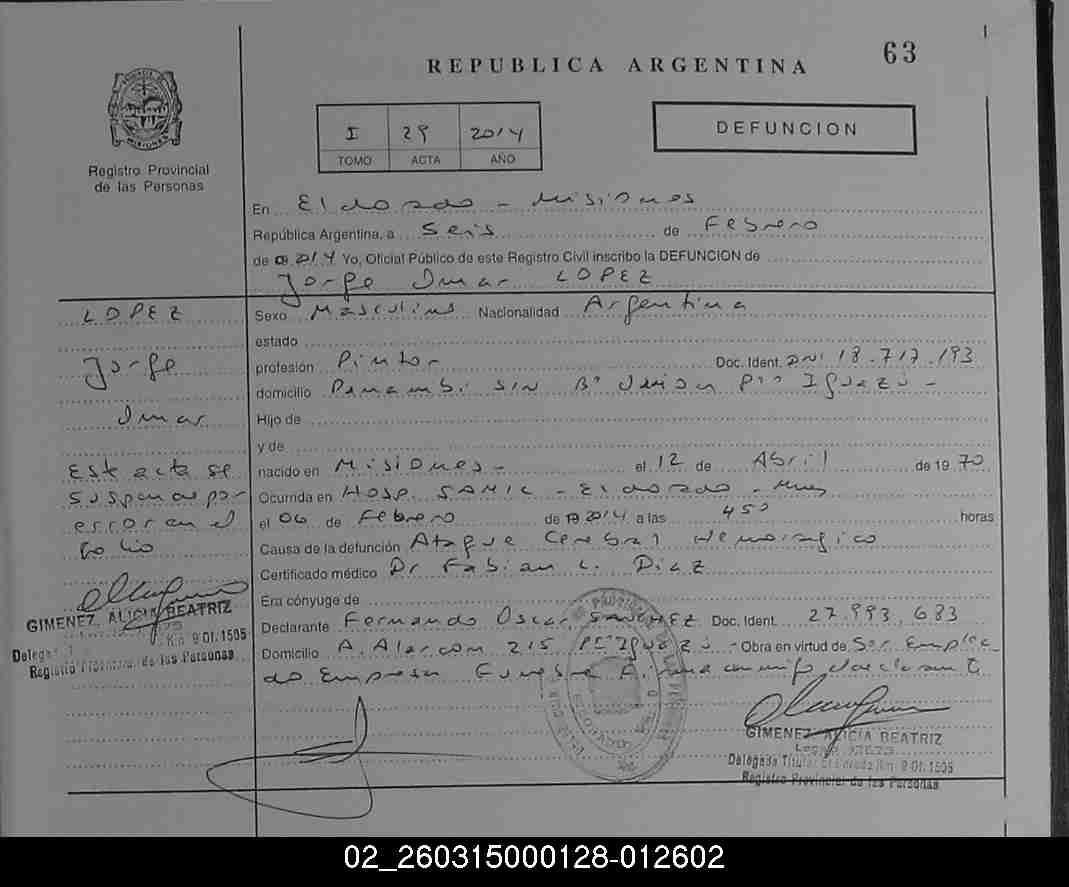 63
REPUBLICA ARGENTINA
PROVINCIA DE MISIONES
Registro Provincial
de las Personas
I 29 2014
TOMO ACTA AÑO
DEFUNCION
En Eldorado - Misiones
República Argentina, a Seis de Febrero
de 2014 Yo, Oficial Público de este Registro Civil inscribo la DEFUNCION de
Jorge Omar LOPEZ
Sexo Masculino Nacionalidad Argentina
estado
profesión Pintor Doc. Ident. DNI 18.717.193
domicilio Panambi S/N Bº Pto Iguazú -
Hijo de
y de
nacido en Misiones - el 12 de Abril de 1970
Ocurrida en Hosp. SAMIC - Eldorado - Mnes
el 06 de Febrero de 2014 a las 450 horas
Causa de la defunción Ataque Cerebral Hemorragico
Certificado médico Dr Fabian L. Diaz
Era cónyuge de
Declarante Fernando Oscar SANCHEZ Doc. Ident. 27.993.683
Domicilio A. Alarcon 215 Pto Iguazú - Obra en virtud de Ser Emplea
do Empresa Funebre Firma conmigo el declarante
LOPEZ
Jorge
Omar
Este acta se
suspende por
error en el
Folio
GIMENEZ, ALICIA BEATRIZ
Registro Provincial de las Personas
GIMENEZ ALICIA BEATRIZ
Delegada Titular
Registro Provincial de las Personas
02_260315000128-012602